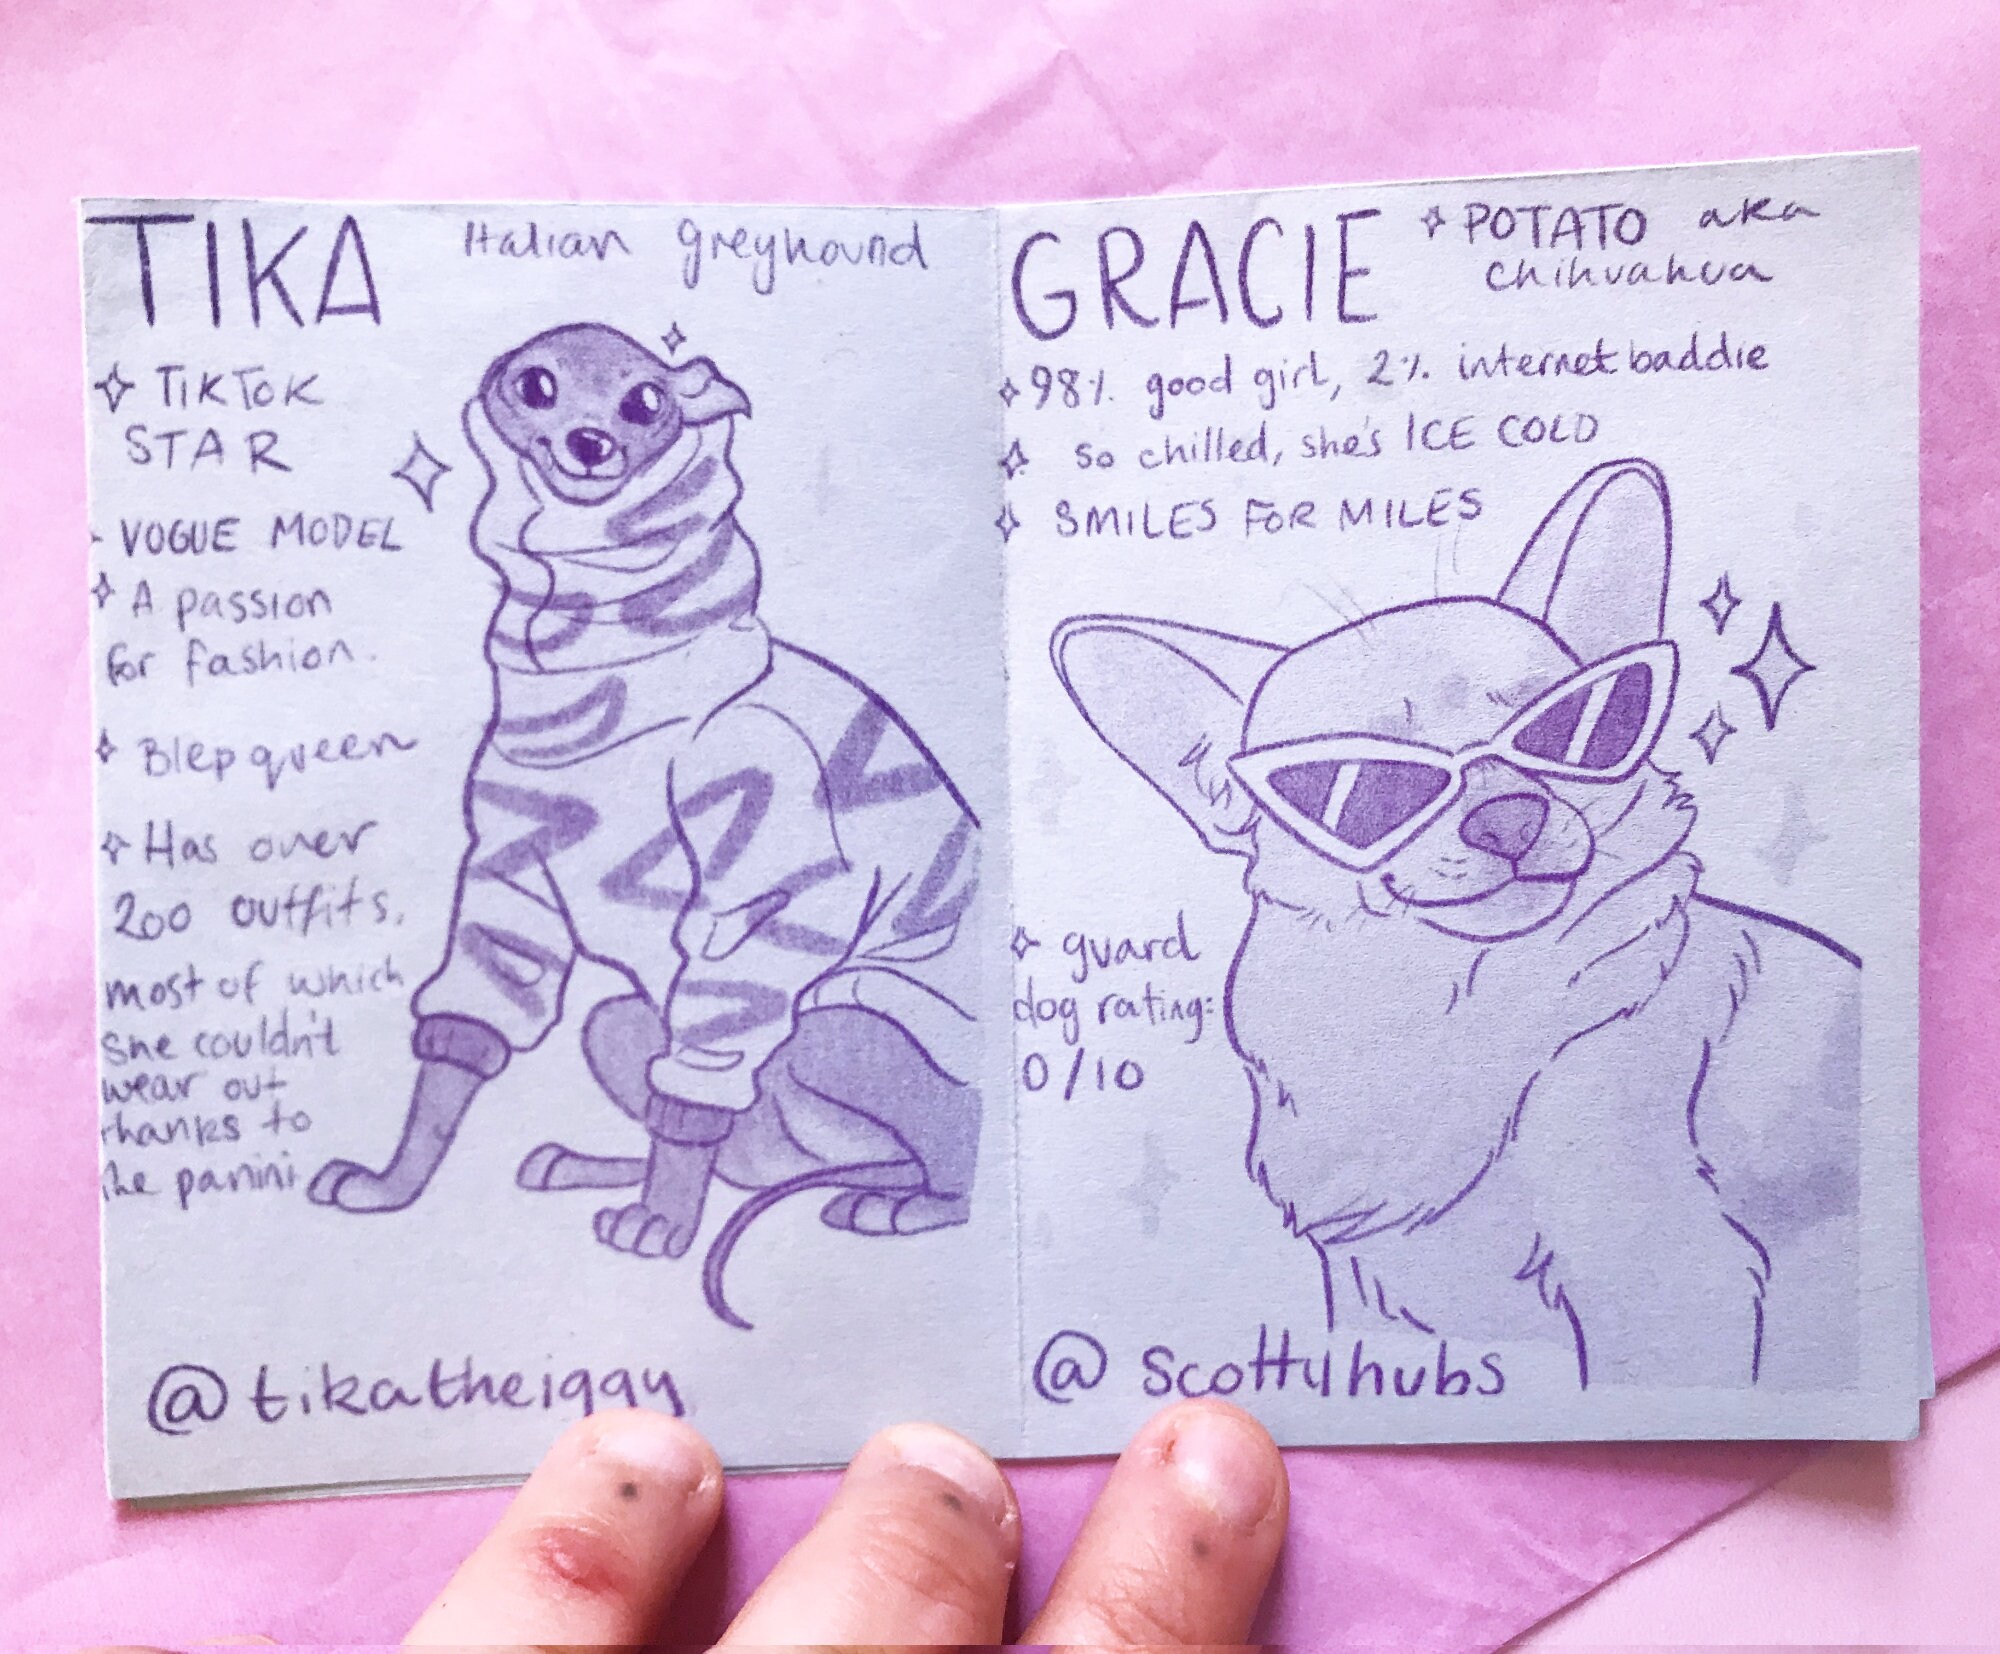 TIKA
Italian greyhound
TIKTOK
STAR
VOGUE MODEL
A passion
for fashion.
Blep queen
Has over
200 outfits.
most of which
she couldn't
wear out
thanks to
the panini
@tikatheiggy
GRACIE
POTATO aka
chihuahua
98% good girl, 2% internet baddie
so chilled, she's ICE COLD
SMILES FOR MILES
guard
dog rating:
0/10
@scottyhubs